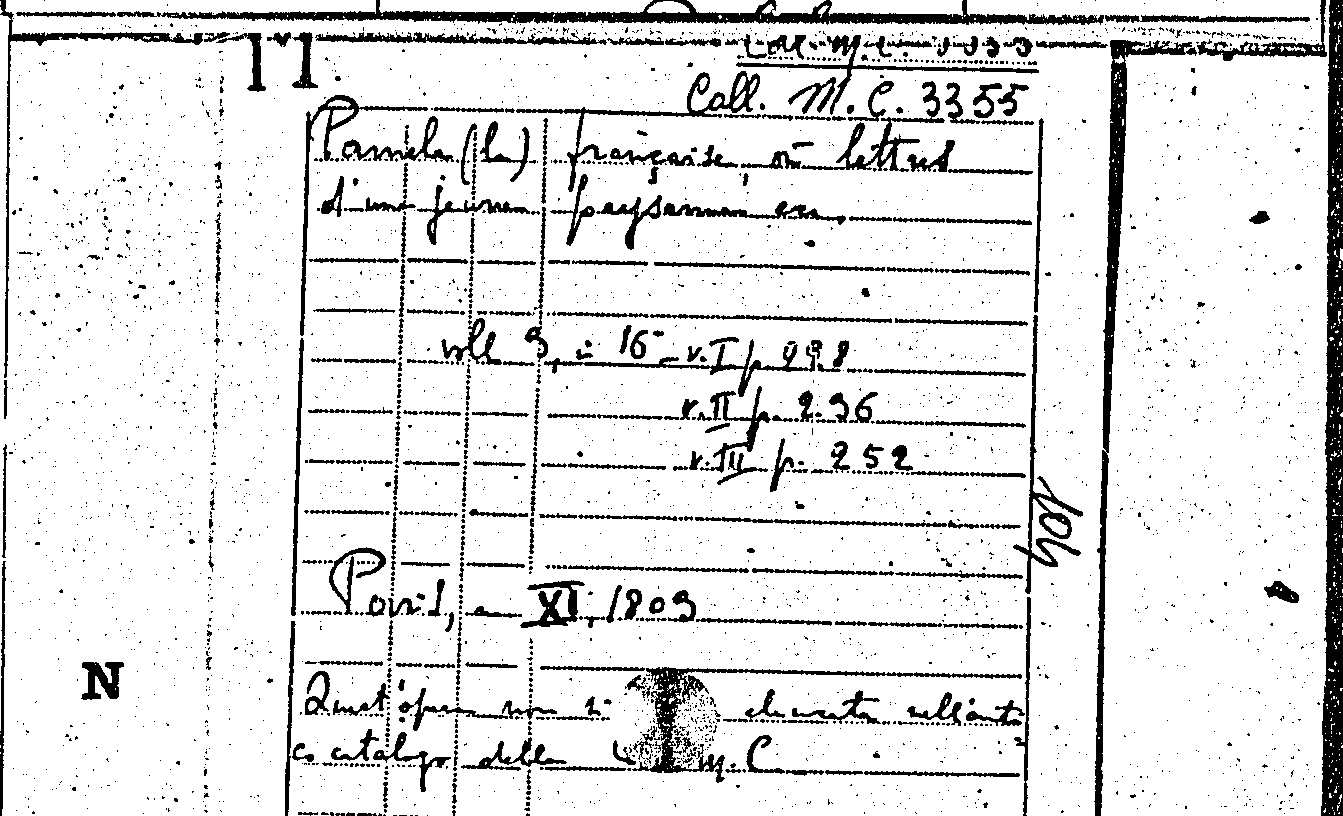 Coll. M. C. 3355
Pamela (la) française, ou lettres
d'une jeune paysanne ecc.
voll 3, in 16 - v. I p.
v. II p. 236
v. III p. 252
104
Paris, an XI, 1803
N
Quest'opera non è elencata nell'anti
co catalogo della M. C.